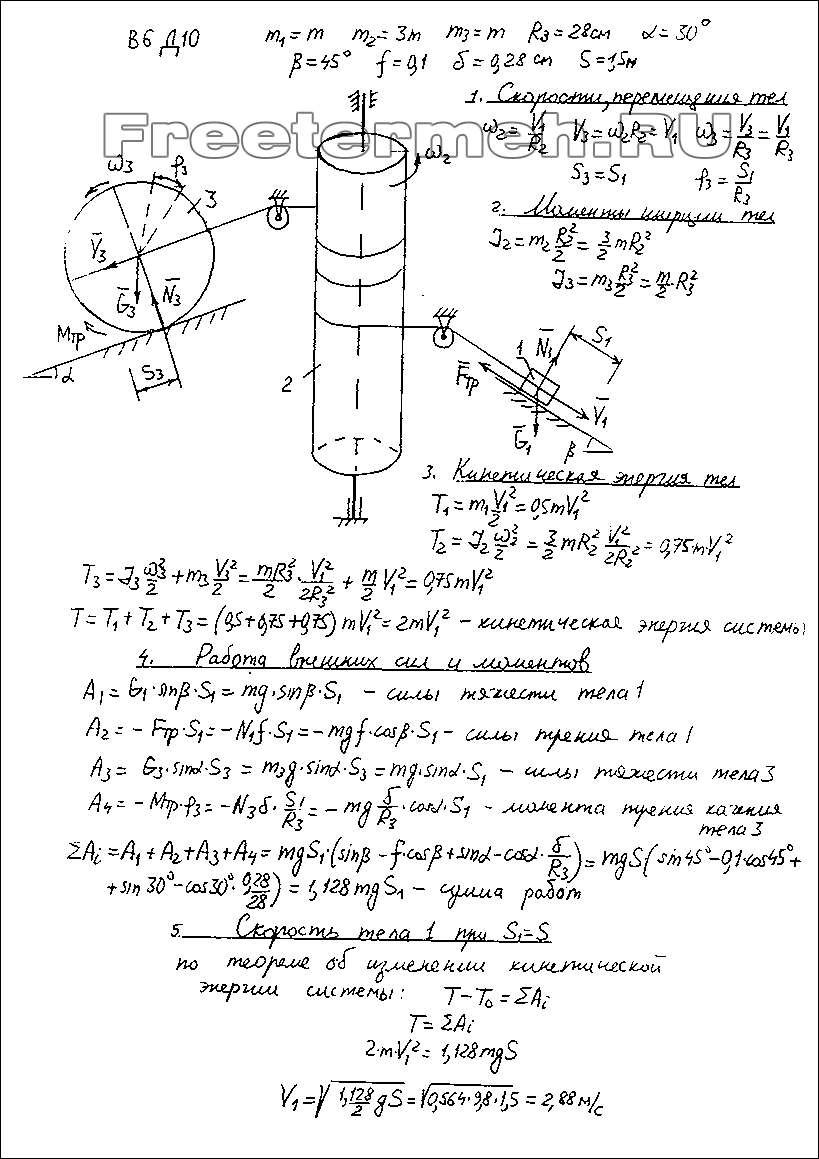 В6 Д10 m₁ = m m₂ = 3m m₃ = m R₃ = 28 см α = 30°
β = 45° f = 0,1 δ = 0,28 см S = 1,5м
1. Скорости, перемещения тел
Freetermeh.RU
ω₂ = V₁/R₂ V₃ = ω₂R₂ = V₁ ω₃ = V₃/R₃ = V₁/R₃
S₃ = S₁ φ₃ = S₁/R₃
2. Моменты инерции тел
J₂ = m₂ R₂²/2 = 3/2 mR₂²
J₃ = m₃ R₃²/2 = m/2·R₃²
ω₃ φ₃ 3
V̅₃ G̅₃ N̅₃
Mтр
α S₃
ω₂
2
1 N̅₃ S₁
F̅тр V̅₁
G̅₁ β
3. Кинетическая энергия тел
T₁ = m₁ V₁²/2 = 0,5mV₁²
T₂ = J₂ ω₂²/2 = 3/2 mR₂² V₁²/2R₂² = 0,75mV₁²
T₃ = J₃ ω₃²/2 + m₃ V₃²/2 = mR₃²/2 · V₁²/2R₃² + m/2 V₁² = 0,75mV₁²
T = T₁ + T₂ + T₃ = (0,5 + 0,75 + 0,75) mV₁² = 2mV₁² – кинетическая энергия системы
4. Работа внешних сил и моментов
A₁ = G₁·sinβ·S₁ = mg·sinβ·S₁ – силы тяжести тела 1
A₂ = – Fтр·S₁ = – N₁f·S₁ = – mgf·cosβ·S₁ – силы трения тела 1
A₃ = G₃·sinα·S₃ = m₃g·sinα·S₃ = mg·sinα·S₁ – силы тяжести тела 3
A₄ = – Mтр·φ₃ = – N₃δ·S₁/R₃ = – mg δ/R₃·cosα·S₁ – момента трения качения
тела 3
ΣAi = A₁ + A₂ + A₃ + A₄ = mgS₁·(sinβ – f·cosβ + sinα – cosα·δ/R₃) = mgS(sin45° – 0,1·cos45° +
+ sin30° – cos30°·0,28/28) = 1,128mgS₁ – сумма работ
5. Скорость тела 1 при S₁ = S
по теореме об изменении кинетической
энергии системы: T – T₀ = ΣAi
T = ΣAi
2·mV₁² = 1,128mgS
V₁ = √(1,128/2 gS) = √(0,564·9,8·1,5) = 2,88 м/с